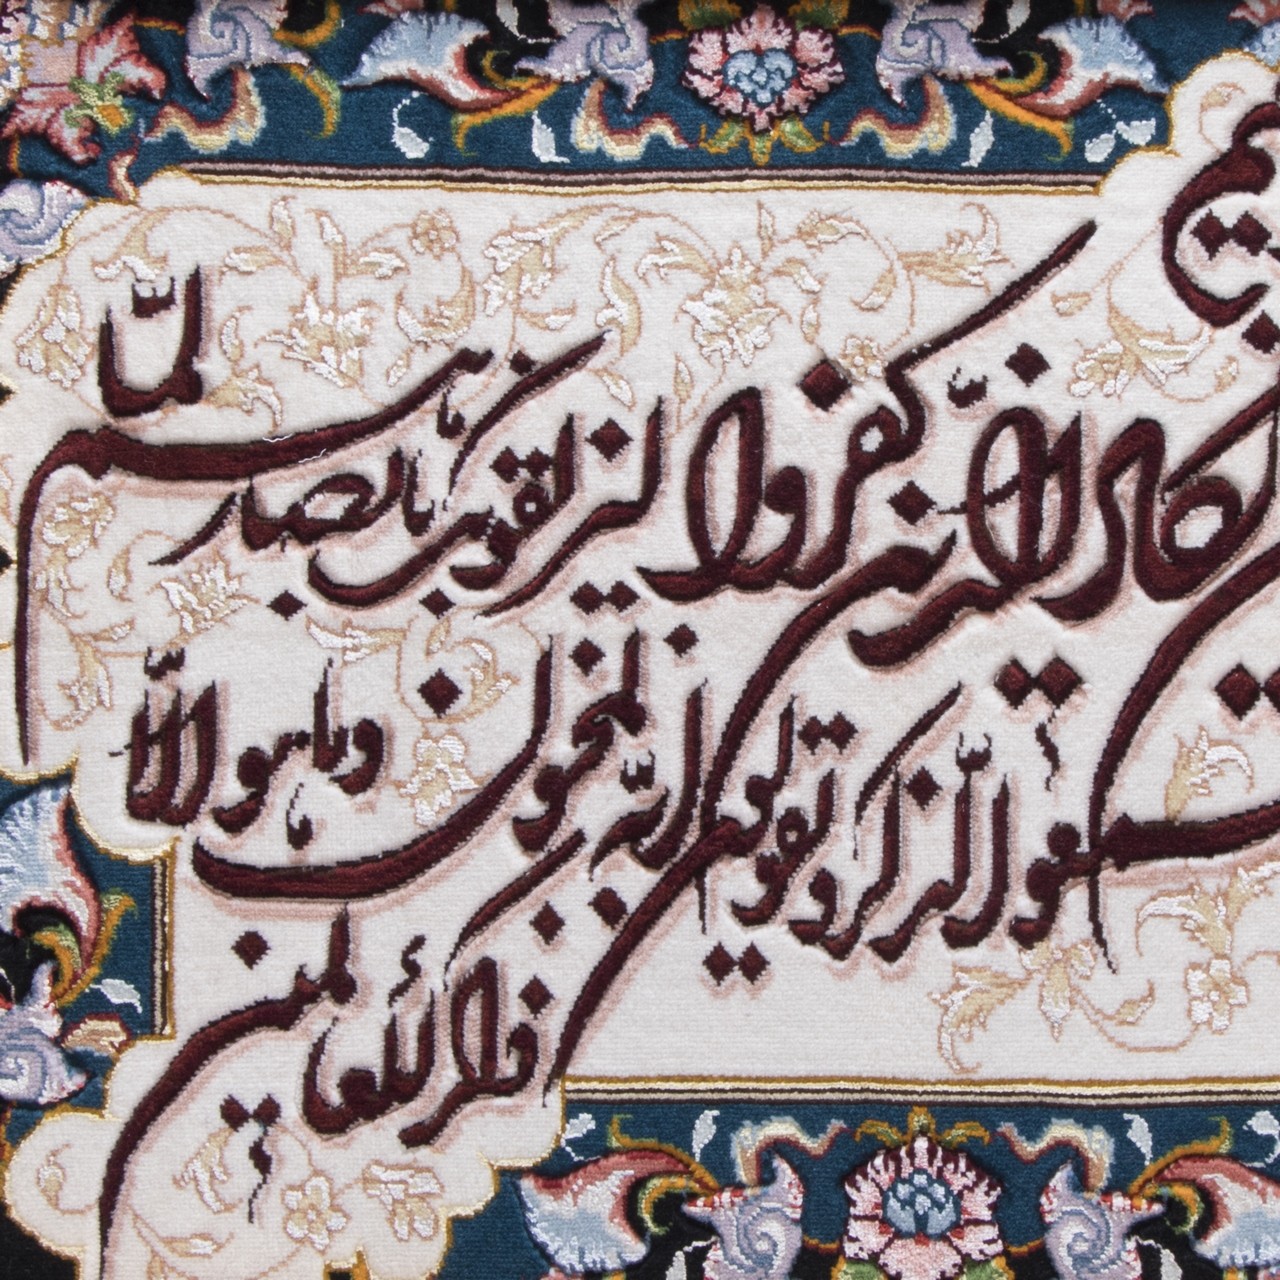 يكاد الذين كفروا ليزلقونك بابصارهم لمّا
سمعوا الذّكر ويقولون انّه لمجنون وما هو الّا
ذكر للعالمين